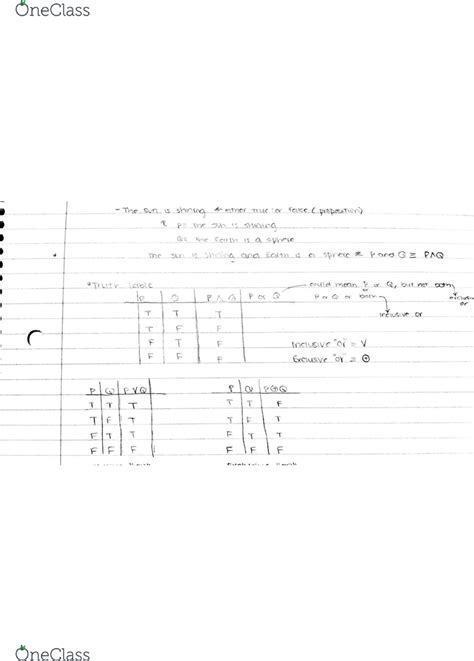 OneClass
- The sun is shining ← either true or false (proposition)
P= the sun is shining
Q= the Earth is a sphere
The sun is shining and Earth is a sphere ≡ P and Q ≡ P∧Q
*Truth Table
could mean P or Q, but not both
P or Q or both
exclusive or
inclusive or
P Q P∧Q P or Q
T T T
T F F
F T F
F F F
Inclusive "or" = V
Exclusive "or" = ⊕
P Q PVQ
T T T
T F T
F T T
F F F
P Q P⊕Q
T T F
T F T
F T T
F F F
OneClass